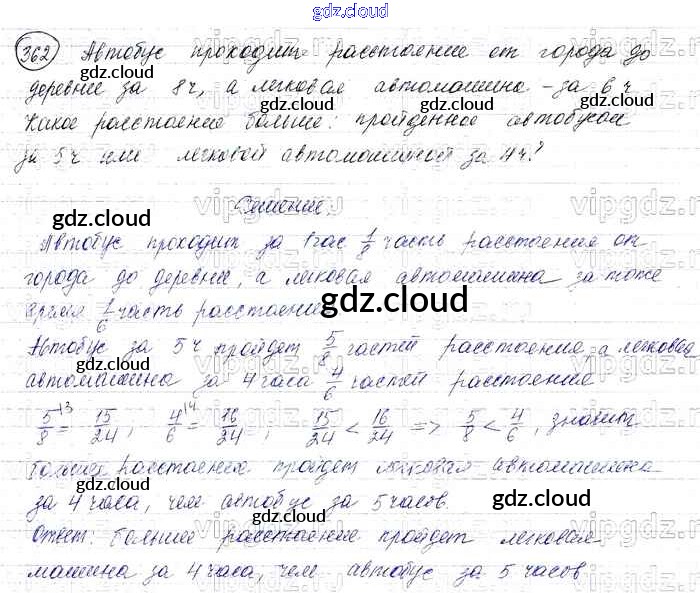 gdz.cloud
362 Автобус проходит расстояние от города до
gdz.cloud
деревне за 8ч, а легковая автомашина - за 6ч
gdz.cloud gdz.cloud
Какое расстояние больше: пройденное автобусом
за 5ч или легковой автомашиной за 4ч?
gdz.cloud gdz.cloud
Решение.
gdz.cloud
Автобус проходит за 1час 1/8 часть расстояния от
города до деревни, а легковая автомашина за тоже
время 1/6 часть расстояния
gdz.cloud
Автобус за 5ч пройдет 5/8 частей расстояния а легковая
автомашина за 4 часа 4/6 частей расстояния
5/8 \3 = 15/24, 4/6 \4 = 16/24, 15/24 < 16/24 => 5/8 < 4/6, значит
gdz.cloud
большее расстояния пройдет легковая автомашина
за 4 часа, чем автобус за 5 часов.
gdz.cloud
gdz.cloud
Ответ: большее расстояние пройдет легковая
машина за 4 часа, чем автобус за 5 часов
gdz.cloud